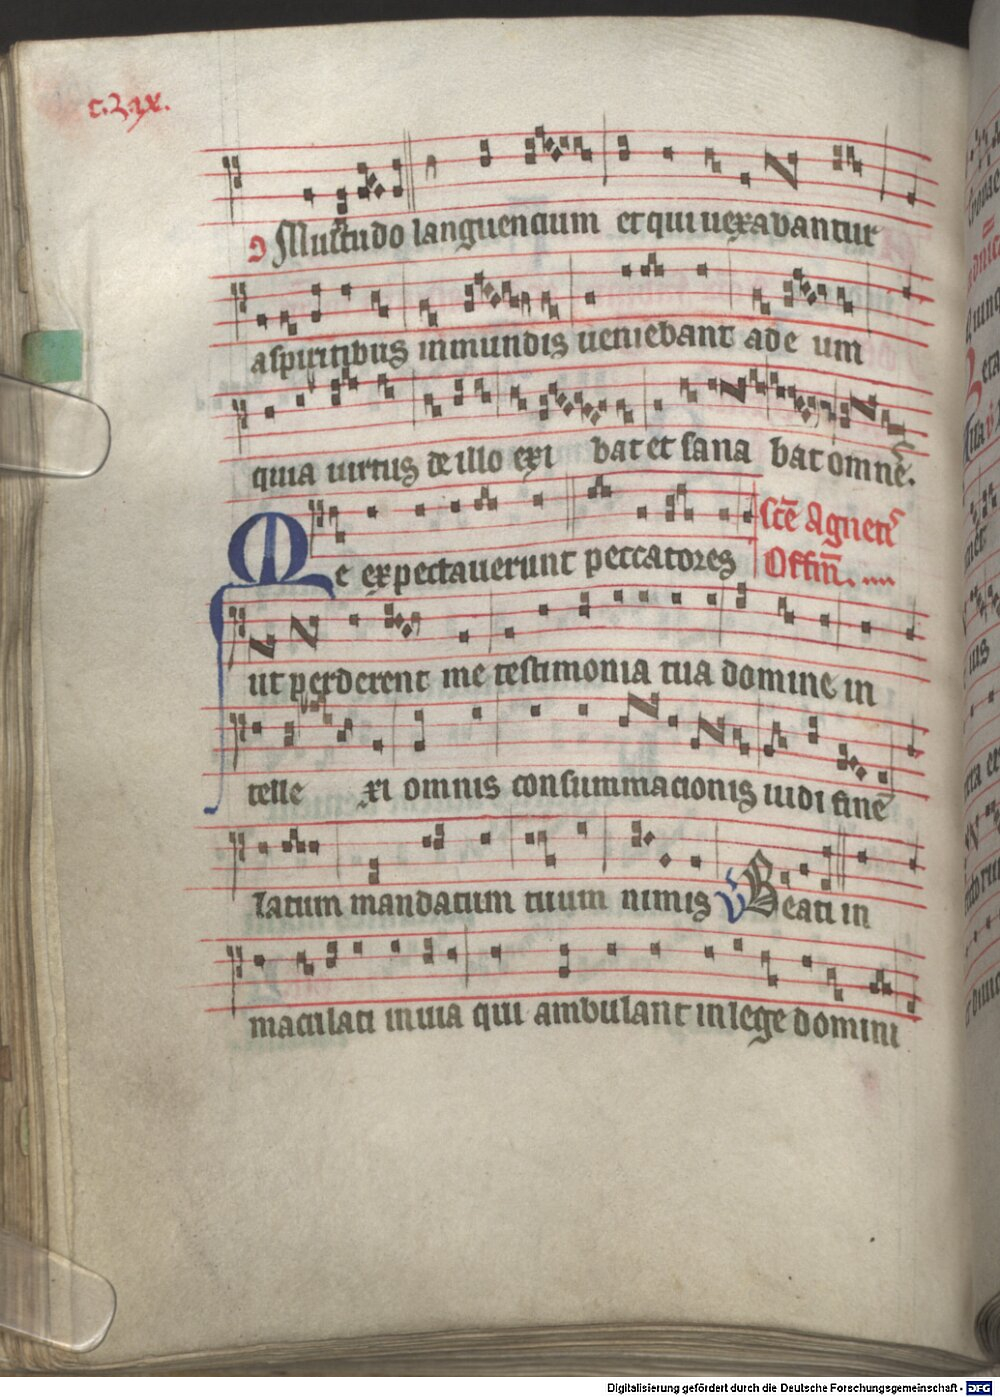 c.Z.ix.
Multitudo languencium et qui uexabantur
aspiritibus inmundis ueniebant ade um
quia uirtus de illo exi bat et sana bat omnēs.
Me expectauerunt peccatores
scē Agnetis
Offm̄. ....
ut perderent me testimonia tua domine in
telle xi omnis consummacionis uidi finē
Latum mandatum tuum nimis V Beati in
maculati inuia qui ambulant in lege domini
Digitalisierung gefördert durch die Deutsche Forschungsgemeinschaft - DFG